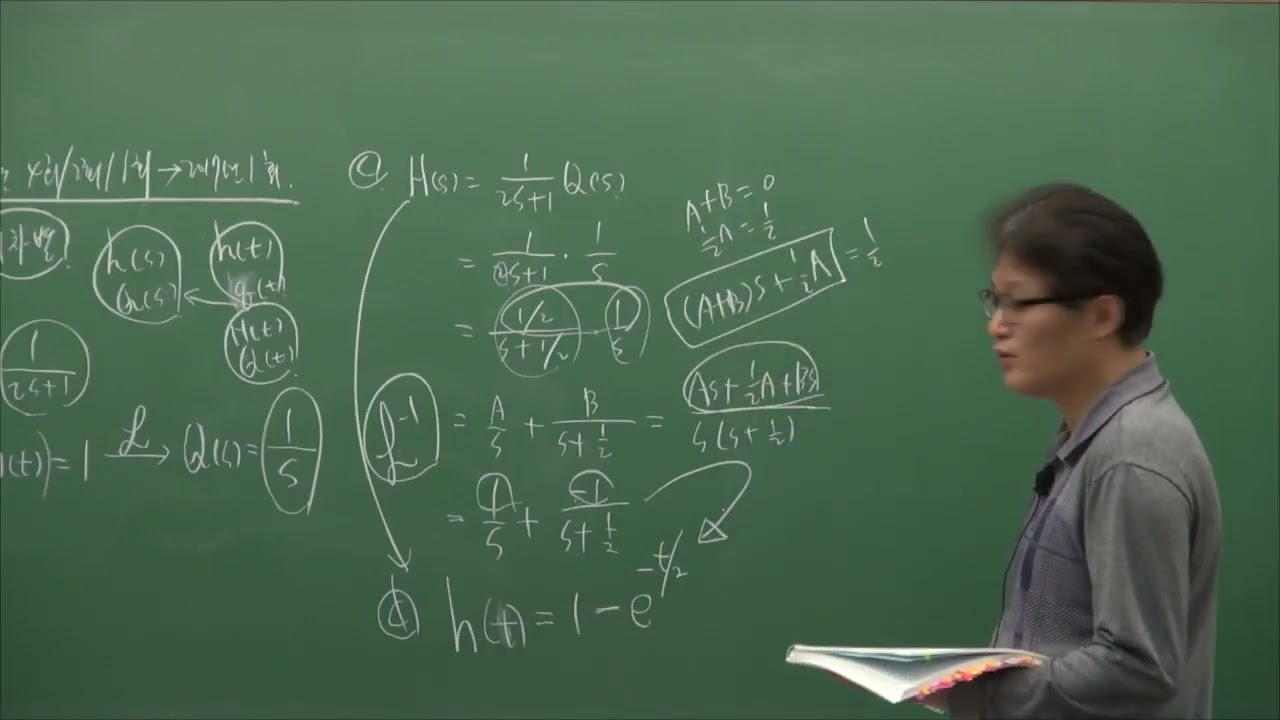 4회/2회/1회 → 2017년 1회.
h(s)
Q(s)
h(t)
q(t)
H(t)
Q(t)
1/(2s+1)
(t) = 1 ℒ→ Q(s) = 1/s
ⓒ H(s) = 1/(2s+1) Q(s)
= 1/(2s+1) · 1/s
= (1/2)/(s+1/2) · 1/s
ℒ⁻¹ = A/s + B/(s+1/2) = (As+1/2A+Bs)/(s(s+1/2))
= 1/s + -1/(s+1/2)
ⓓ h(t) = 1 - e^(-t/2)
A+B = 0
1/2A = 1/2
(A+B)s + 1/2A = 1/2